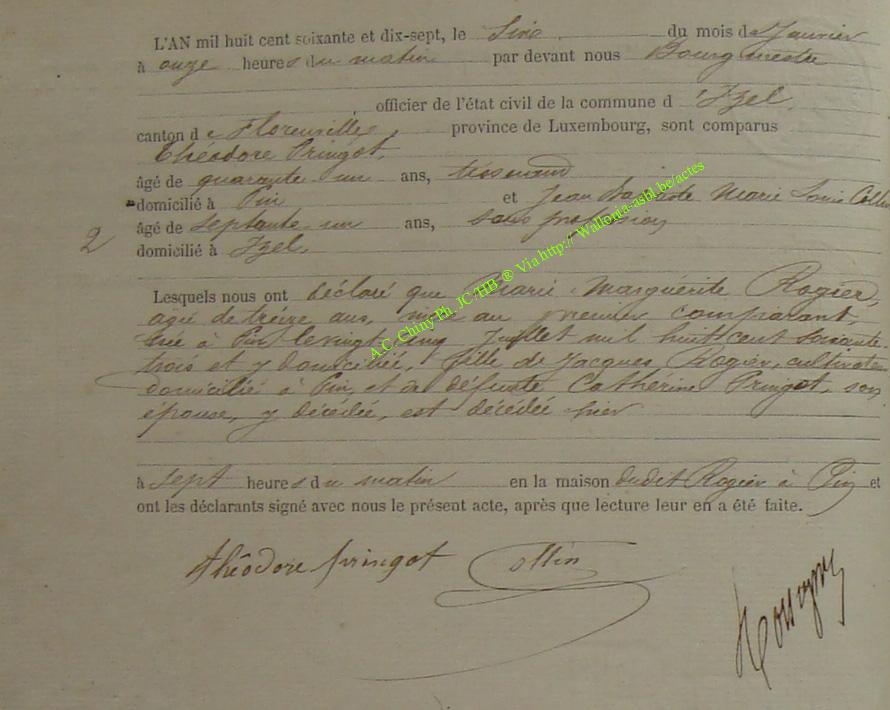 L'AN mil huit cent soixante et dix-sept, le Six du mois de Janvier
à onze heures du matin par devant nous Bourgmestre
, officier de l'état civil de la commune d'Izel,
canton de Florenville, province de Luxembourg, sont comparus
Théodore Pringot,
âgé de quarante un ans, tisserand
domicilié à Pin et Jean Baptiste Marie Louis Collin
âgé de septante un ans, sans profession
2
domicilié à Izel,
Lesquels nous ont déclaré que Marie Marguérite Rogier,
agée de treize ans, nièce au premier comparant,
née à Pin le vingt cinq Juillet mil huit cent soixante-
trois et y domiciliée, fille de Jacques Rogier, cultivateur
domicilié à Pin, et de défunte Cathérine Pringot, son
épouse, y décédée, est décédée hier
à sept heures du matin en la maison dudit Rogier à Pin et
ont les déclarants signé avec nous le présent acte, après que lecture leur en a été faite.
théodore pringot Collin
A.C. Chiny Ph. JC-HB ® Via http:// Wallonia-asbl.be/actes